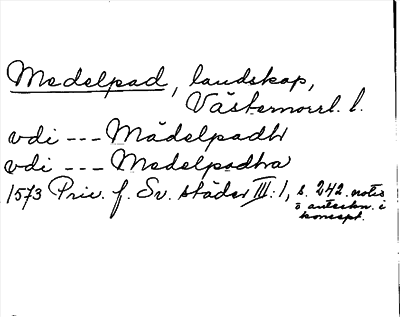 Medelpad, landskap,
Västernorrl. l.
vdi --- Mädelpadh
vdi --- Medelpadha
1573 Priv. f. Sv. städer III:1, s. 242. notis
o anteckn. i
koncept.